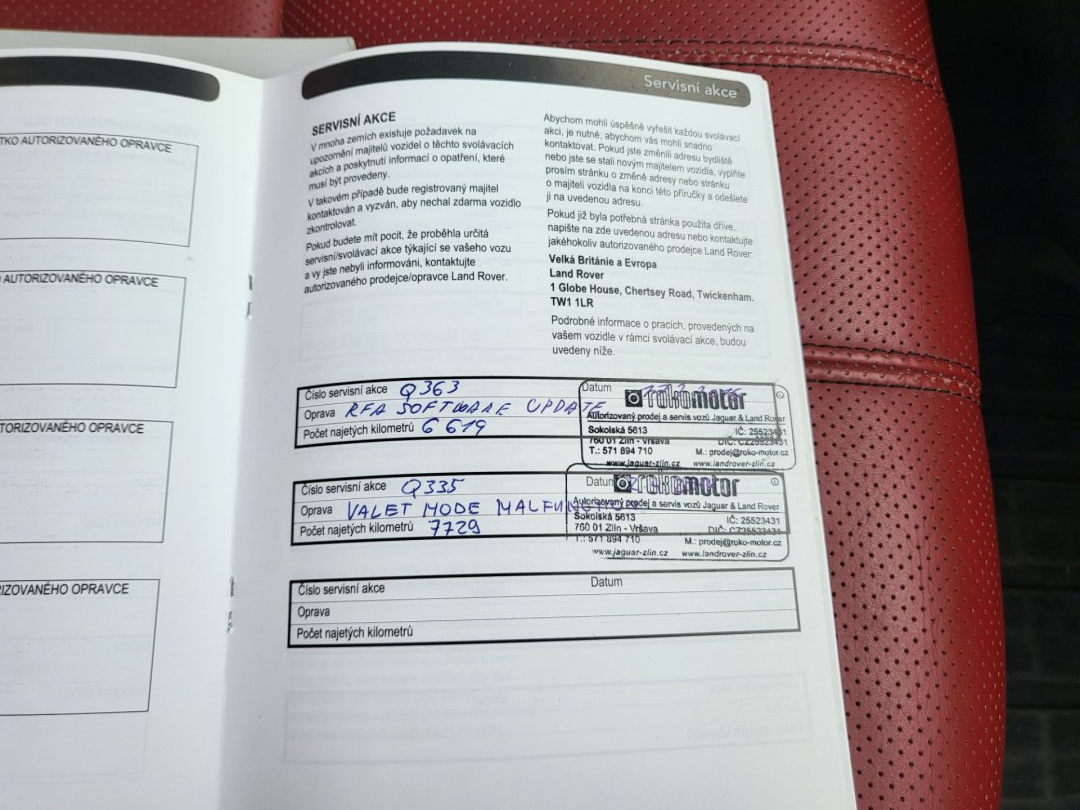 TKO AUTORIZOVANÉHO OPRAVCE
AUTORIZOVANÉHO OPRAVCE
TORIZOVANÉHO OPRAVCE
IZOVANÉHO OPRAVCE
Servisní akce
SERVISNÍ AKCE
V mnoha zemích existuje požadavek na
upozornění majitelů vozidel o těchto svolávacích
akcích a poskytnutí informací o opatření, které
musí být provedeny.
V takovém případě bude registrovaný majitel
kontaktován a vyzván, aby nechal zdarma vozidlo
zkontrolovat.
Pokud budete mít pocit, že proběhla určitá
servisní/svolávací akce týkající se vašeho vozu
a vy jste nebyli informováni, kontaktujte
autorizovaného prodejce/opravce Land Rover.
Abychom mohli úspěšně vyřešit každou svolávací
akci, je nutné, abychom vás mohli snadno
kontaktovat. Pokud jste změnili adresu bydliště
nebo jste se stali novým majitelem vozidla, vyplňte
prosím stránku o změně adresy nebo stránku
o majiteli vozidla na konci této příručky a odešlete
ji na uvedenou adresu.
Pokud již byla potřebná stránka použita dříve,
napište na zde uvedenou adresu nebo kontaktujte
jakéhokoliv autorizovaného prodejce Land Rover.
Velká Británie a Evropa
Land Rover
1 Globe House, Chertsey Road, Twickenham.
TW1 1LR
Podrobné informace o pracích, provedených na
vašem vozidle v rámci svolávací akce, budou
uvedeny níže.
Číslo servisní akce Q363 Datum
Oprava RFA SOFTWARE UPDATE
Počet najetých kilometrů 6 619
rokomotor
Autorizovaný prodej a servis vozů Jaguar & Land Rover
Sokolská 5613 IČ: 25523431
760 01 Zlín - Vršava DIČ: CZ25523431
T.: 571 894 710 M.: prodej@roko-motor.cz
www.jaguar-zlin.cz www.landrover-zlin.cz
Číslo servisní akce Q335 Datum
Oprava VALET MODE MALFUNCTION
Počet najetých kilometrů 7729
rokomotor
Autorizovaný prodej a servis vozů Jaguar & Land Rover
Sokolská 5613 IČ: 25523431
760 01 Zlín - Vršava DIČ: CZ25523431
T.: 571 894 710 M.: prodej@roko-motor.cz
www.jaguar-zlin.cz www.landrover-zlin.cz
Číslo servisní akce Datum
Oprava
Počet najetých kilometrů